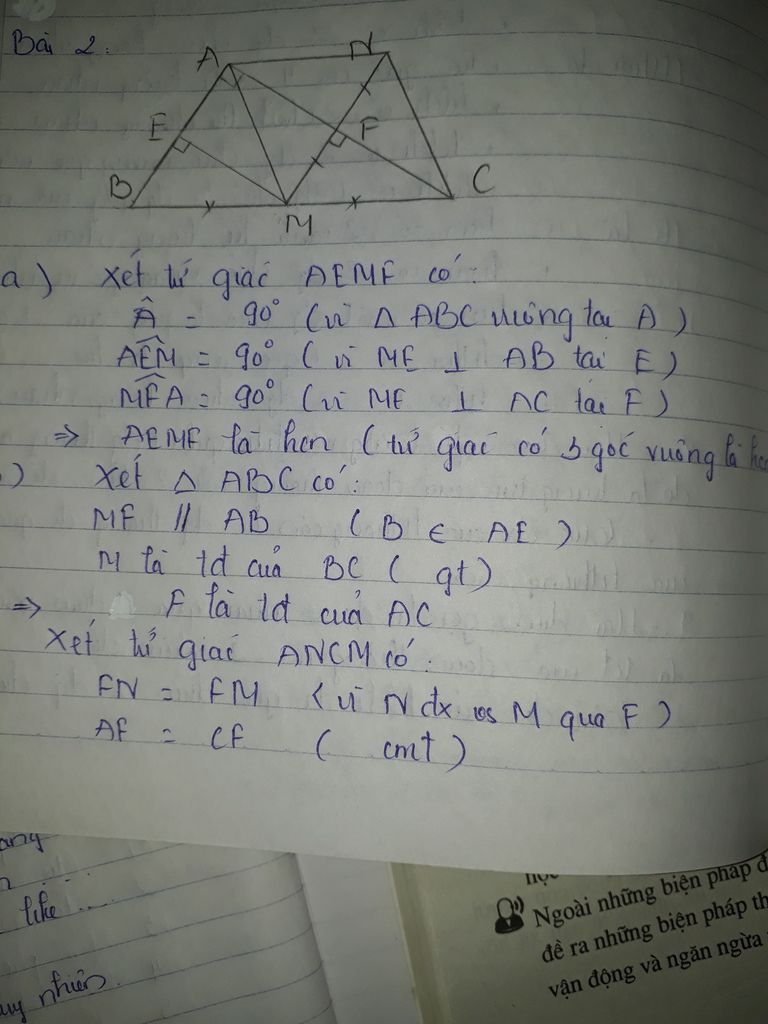 Bài 2:
A
N
E
F
B
C
M
a) Xét tứ giác AEMF có:
Â = 90° (vì Δ ABC vuông tại A)
AÊM = 90° (vì ME ⊥ AB tại E)
MF̂A = 90° (vì MF ⊥ AC tại F)
⇒ AEMF là hcn (tứ giác có 3 góc vuông là
) Xét Δ ABC có:
MF // AB (B ∈ AE)
M là tđ của BC (gt)
⇒ F là tđ của AC
Xét tứ giác ANCM có:
FN = FM (vì N đx vs M qua F)
AF = CF (cmt)
like ...
nhiên.
học
Ngoài những biện pháp
đề ra những biện pháp
vận động và ngăn ngừa